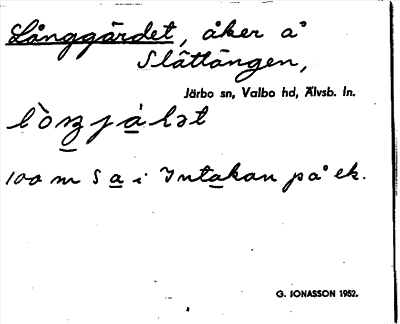 Långgärdet, åker å
Slättängen,
Järbo sn, Valbo hd, Älvsb. ln.
100 m S a i Intakan på ek.
G. JONASSON 1952.